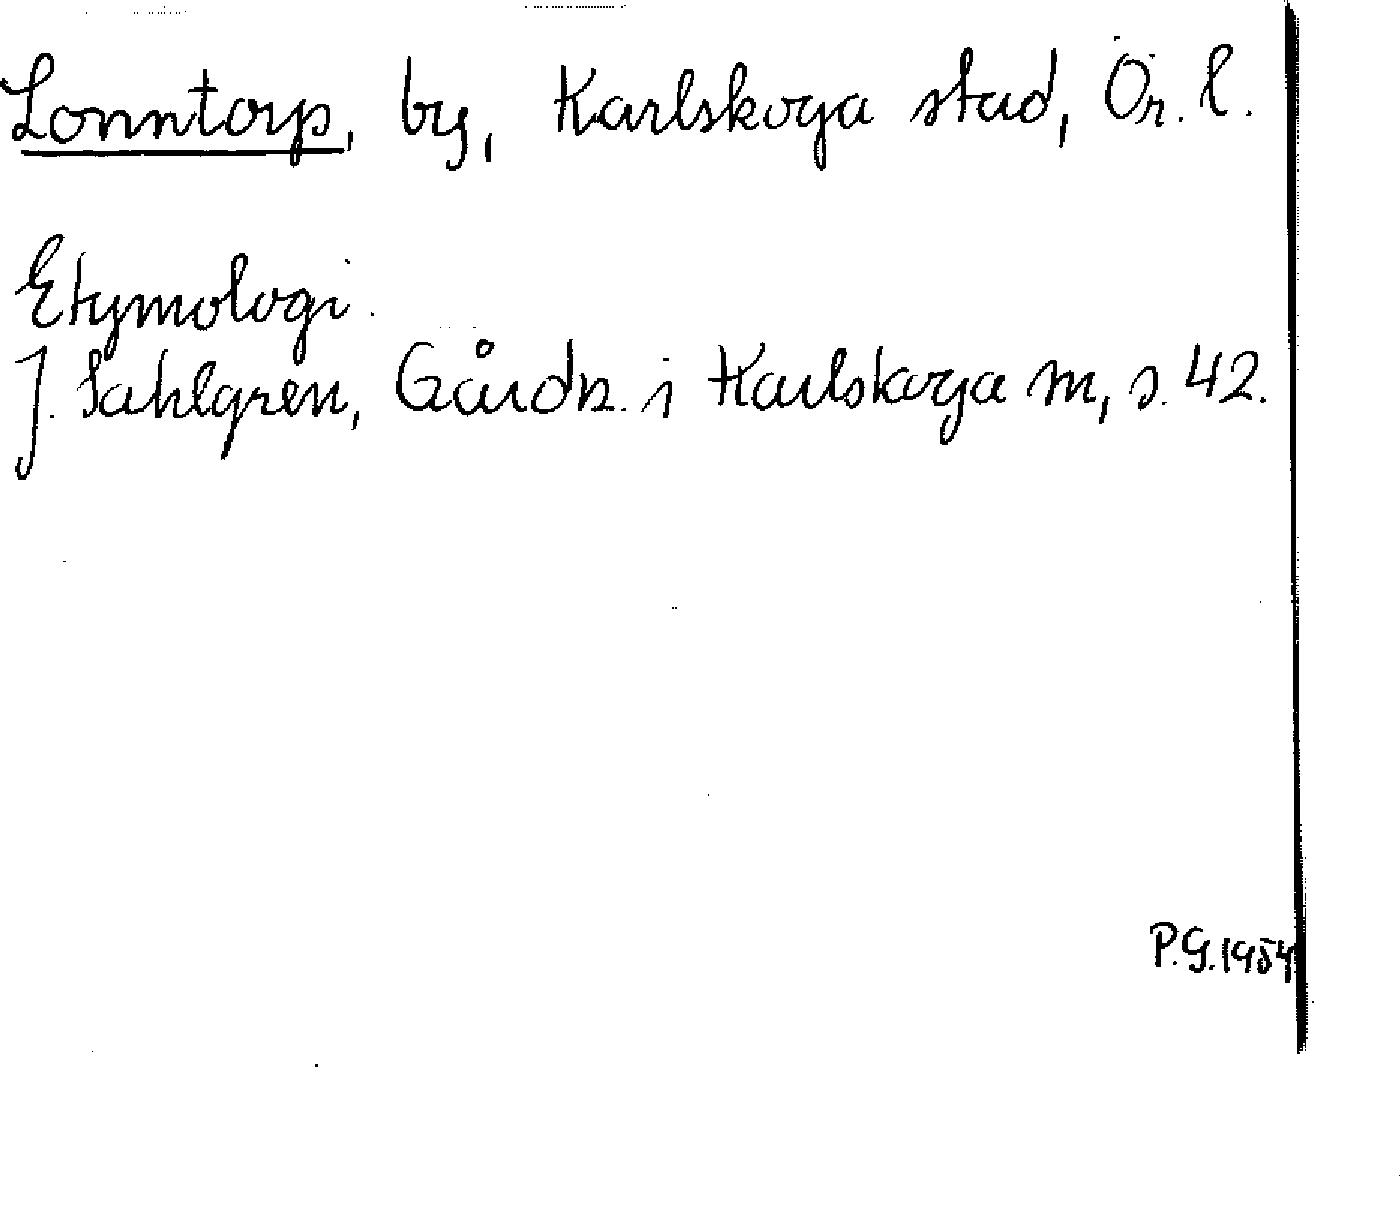 Lonntorp, by, Karlskoga stad, Ör. l.
Etymologi.
J. Sahlgren, Gårdn. i Karlskoga m, s. 42.
P.G. 1954